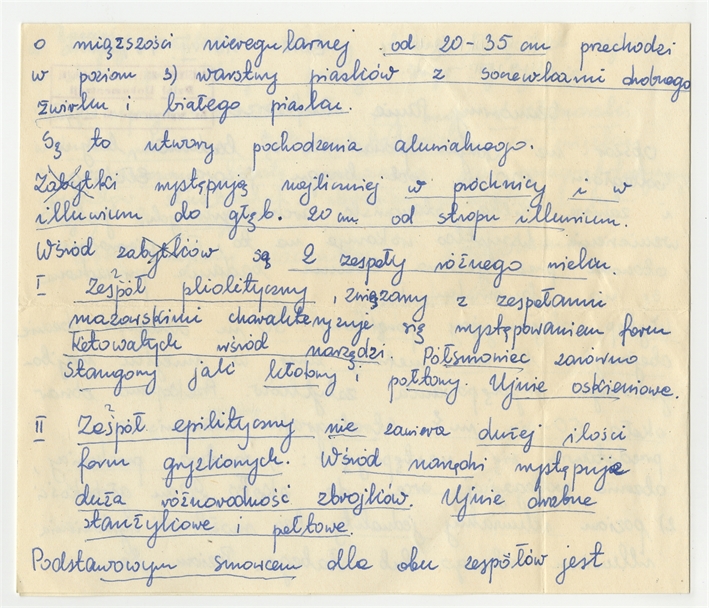 o miąższości nieregularnej od 20-35 cm przechodzi
w poziom 3) warstwy piasków z soczewkami drobnego
żwirku i białego piasku.
Są to utwory pochodzenia aluwialnego.
Zabytki występują najliczniej w próchnicy i w
illuwium do głęb. 20 cm od stropu illuwium.
Wśród zabytków są 2 zespoły różnego wieku
I Zespół pliolityczny, związany z zespołami
mazowskimi charakteryzuje się występowaniem form
łetowatych wśród narzędzi. Półsmoniec zarówno
stangony jak i łetobny i połtony. Ujnie osknieniowe.
II Zespół epilityczny nie zawiera dużej ilości
form gryzkonych. Wśród narzędzi występuje
duża różnorodność zbrojków. Ujnie drobne
stantyłkowe i pełtowe.
Podstawowym smoncem dla obu zespółów jest